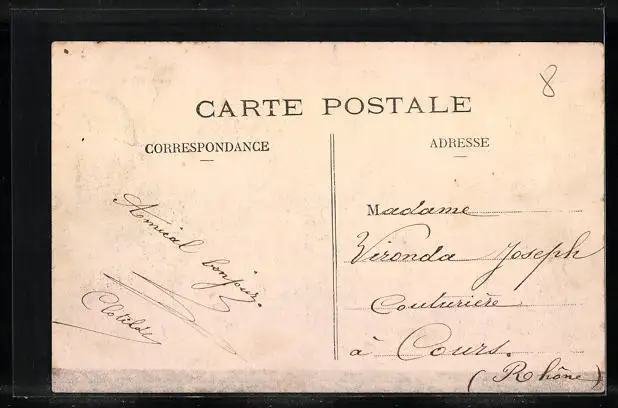 8
CARTE POSTALE
CORRESPONDANCE
ADRESSE
Amical bonjour.
Clotilde
Madame
Vironda Joseph
Couturière
à Cours.
(Rhône)